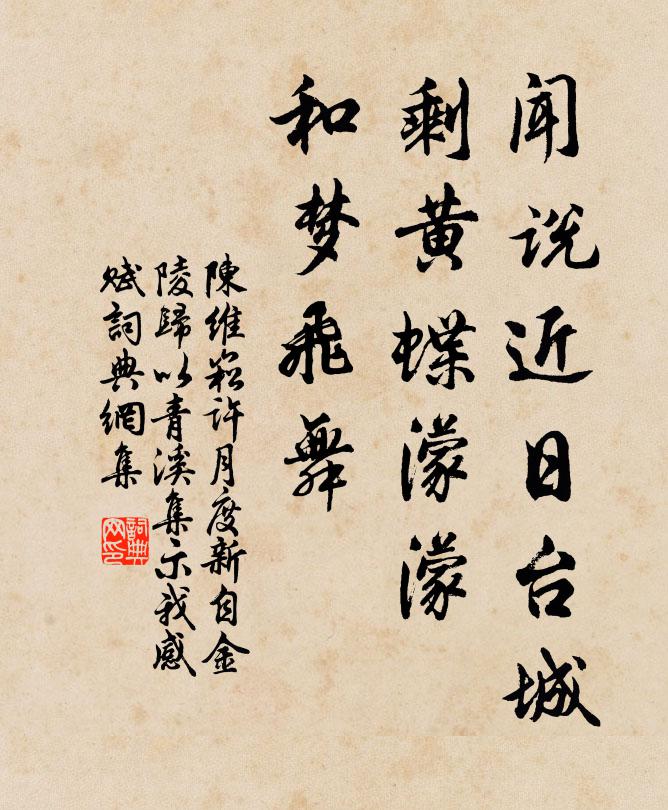 闻说近日台城
剩黄蝶濛濛
和梦飛舞
陳維崧許月度新自金
陵歸以青溪集示我感
赋詞典網集
詞典
网印